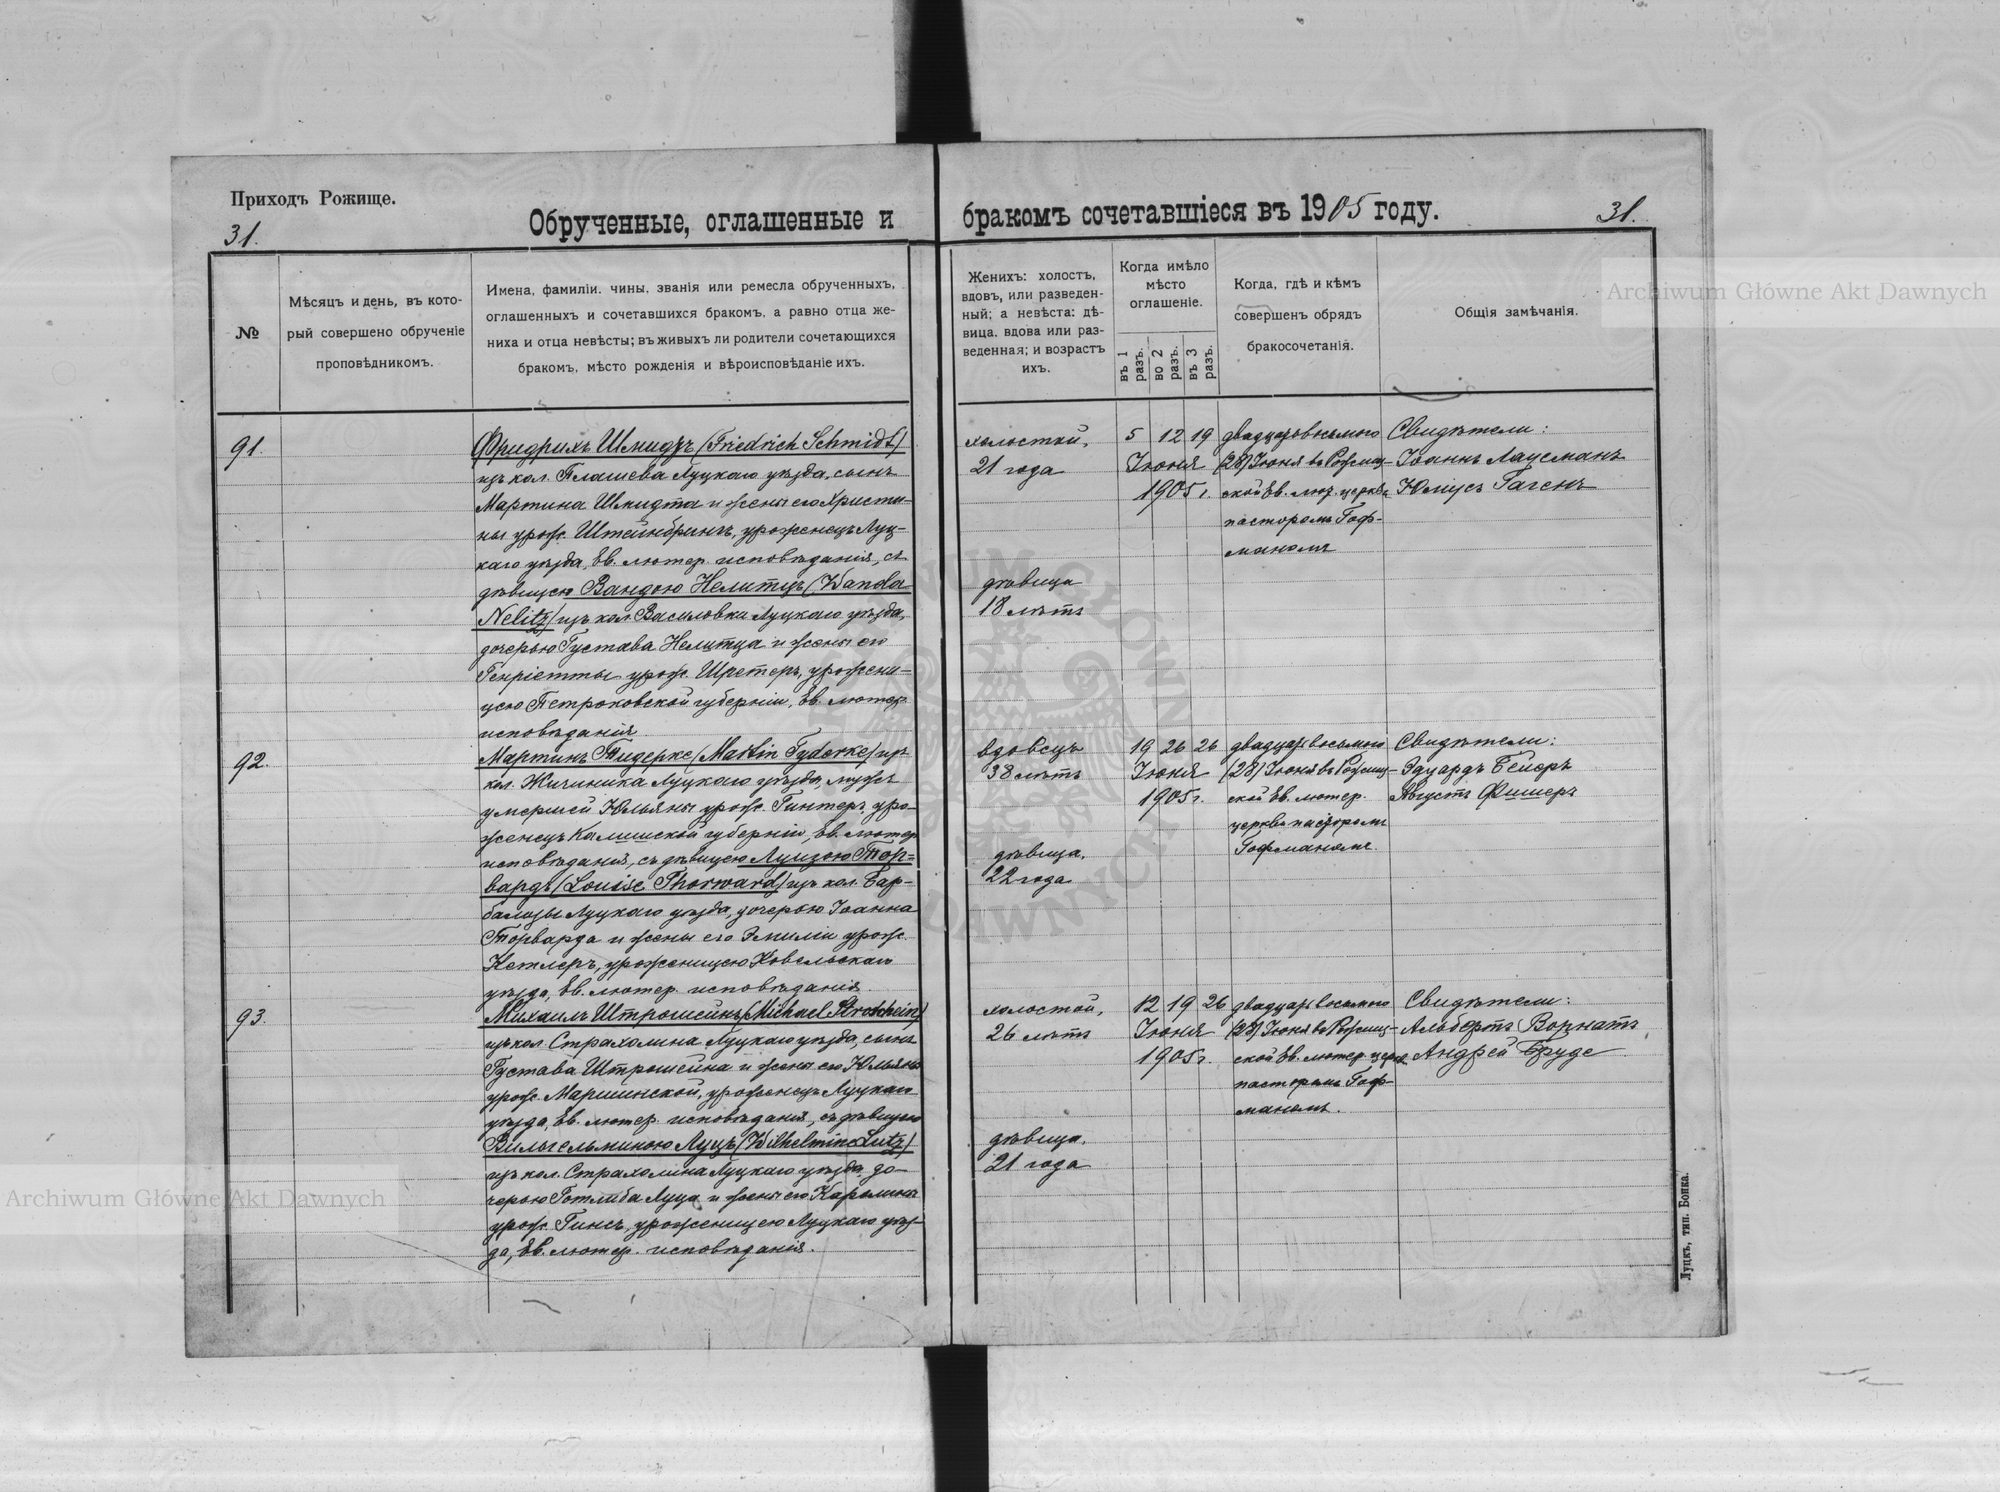 Приходъ Рожище.
31.
Обрученные, оглашенные и
бракомъ сочетавшіеся въ 1905 году.
31.
№
Мѣсяцъ и день, въ кото-
рый совершено обрученіе
проповѣдникомъ.
Имена, фамиліи, чины, званія или ремесла обрученныхъ,
оглашенныхъ и сочетавшихся бракомъ, а равно отца же-
ниха и отца невѣсты; въ живыхъ ли родители сочетающихся
бракомъ, мѣсто рожденія и вѣроисповѣданіе ихъ.
Женихъ: холостъ,
вдовъ, или разведен-
ный; а невѣста: дѣ-
вица, вдова или раз-
веденная; и возрастъ
ихъ.
Когда имѣло
мѣсто
оглашеніе.
въ 1 разъ.
во 2 разъ.
въ 3 разъ.
Когда, гдѣ и кѣмъ
совершенъ обрядъ
бракосочетанія.
Общія замѣчанія.
Archiwum Główne Akt Dawnych
91.
Фридрихъ Шмидтъ (Friedrich Schmidt)
изъ кол. Плашева Луцкаго уѣзда, сынъ
Мартина Шмидта и жены его Христи-
ны урож. Штейнбринкъ, уроженецъ Луц-
каго уѣзда, Ев. лютер. исповѣданія, съ
дѣвицею Вандою Нелитцъ (Wanda
Nelitz) изъ кол. Василовки Луцкаго уѣзда,
дочерью Густава Нелитца и жены его
Генріетты урож. Шретеръ, уроженн-
цею Петроковской губерніи, Ев. лютер.
исповѣданія
холостой,
21 года
дѣвица
18 лѣтъ
5 12 19
Іюня
1905 г.
двадцатьвосьмого
(28) Іюня въ Рожищ-
ской Ев. лют. церкви
пасторомъ Гоф-
маномъ
Свидѣтели:
Іоаннъ Лаусманъ
Юліусъ Гагенъ
92.
Мартинъ Тидерке (Martin Tyderke) изъ
кол. Жичиника Луцкаго уѣзда, мужъ
умершей Юльяны урож. Гинтеръ, уро-
женецъ Калишской губерніи, Ев. лютер.
исповѣданія, съ дѣвицею Луизою Тор-
вардъ (Louise Thorward) изъ кол. Бар-
балозы Луцкаго уѣзда, дочерью Іоанна
Торварда и жены его Эмиліи урож.
Кетлеръ, уроженицею Ковельскаго
уѣзда, Ев. лютер. исповѣданія.
вдовецъ
38 лѣтъ
дѣвица,
22 года
19 26 26
Іюня
1905 г.
двадцать восьмого
(28) Іюня въ Рожищ-
ской Ев. лютер.
церкви пасторомъ
Гофманомъ.
Свидѣтели:
Эдуардъ Бейеръ
Августъ Фишеръ
93.
Михаилъ Штрошейнъ (Michael Stroschein)
изъ кол. Страхолина Луцкаго уѣзда, сынъ
Густава Штрошейна и жены его Юльяны
урож. Маршинской, уроженецъ Луцкаго
уѣзда, Ев. лютер. исповѣданія, съ дѣвицею
Вильгельминою Луцъ (Wilhelmine Lutz)
изъ кол. Страхолина Луцкаго уѣзда, до-
черью Готлиба Луца и жены его Каролины
урож. Гинсъ, уроженицею Луцкаго уѣз-
да, Ев. лютер. исповѣданія.
холостой,
26 лѣтъ
дѣвица,
21 года
12 19 26
Іюня
1905 г.
двадцать восьмого
(28) Іюня въ Рожищ-
ской Ев. лютер. церкви
пасторомъ Гоф-
маномъ.
Свидѣтели:
Альбертъ Ворнатъ
Андрей Бруде
Луцкъ, тип. Бонка.
Archiwum Główne Akt Dawnych